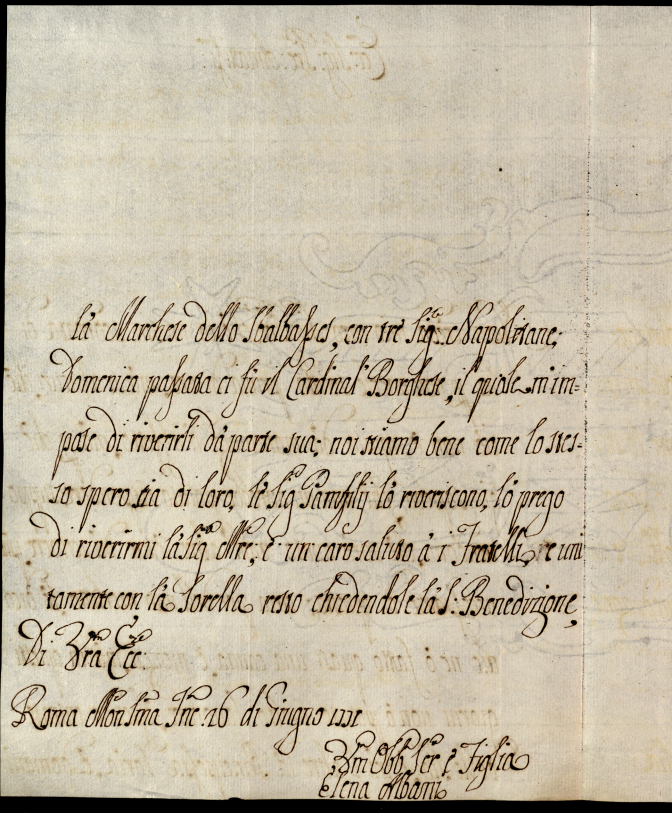 la Marchese dello Sbalbasses, con tre Sig.re Napolitane;
Domenica passata ci fù il Cardinal' Borghese, il quale m'im-
pose di riverirli dà parte sua; noi stiamo bene come lo stes-
so spero sia di loro, le Sig.re Pamfilij lo riveriscono, lo prego
di riverirmi la Sig.ra Mre; e un caro saluto à i Fratelli, e uni
tamente con la Sorella resto chiedendole la S: Benedizione,
Di Vra Ecc:
Roma 16 di Giugno
Obb Ser è Figlia
Elena Albani